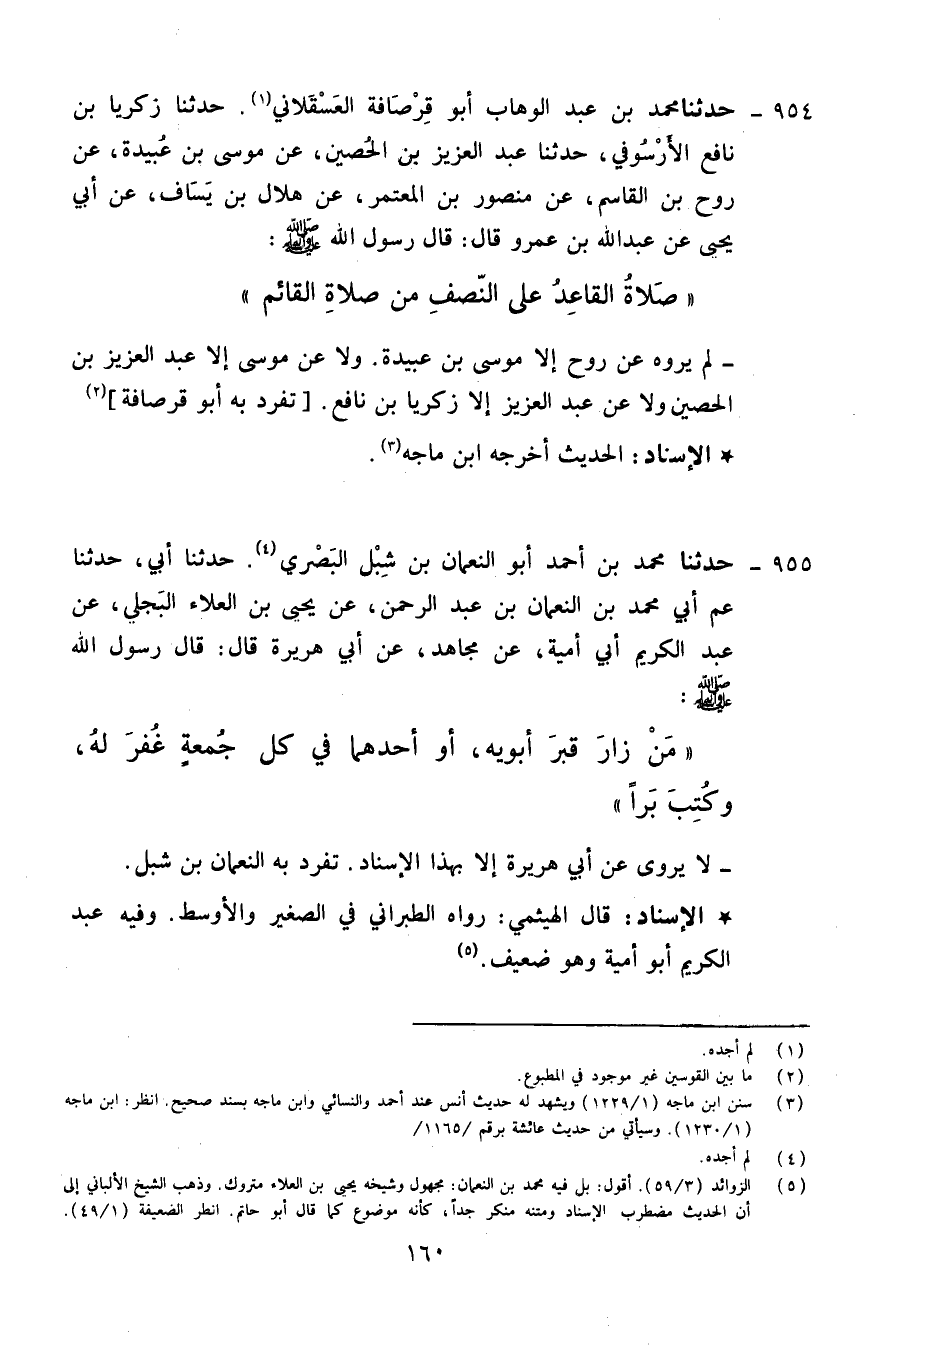 ٩٥٤ - حدثنا محمد بن عبد الوهاب أبو قِرْصَافة العَسْقَلاني(١). حدثنا زكريا بن
نافع الأَرْسُوفي، حدثنا عبد العزيز بن الحُصين، عن موسى بن عُبيدة، عن
روح بن القاسم، عن منصور بن المعتمر، عن هلال بن يَسَاف، عن أبي
يحيى عن عبدالله بن عمرو قال: قال رسول الله ﷺ :
« صَلاةُ القاعِدُ على النّصفِ من صلاةِ القائم »
- لم يروه عن روح إلا موسى بن عبيدة. ولا عن موسى إلا عبد العزيز بن
الحصين ولا عن عبد العزيز إلا زكريا بن نافع. [ تفرد به أبو قرصافة ](٢)
★ الإسناد: الحديث أخرجه ابن ماجه(٣).
٩٥٥ - حدثنا محمد بن أحمد أبو النعمان بن شِبْل البَصْري(٤). حدثنا أبي، حدثنا
عم أبي محمد بن النعمان بن عبد الرحمن، عن يحيى بن العلاء البَجلي، عن
عبد الكريم أبي أمية، عن مجاهد، عن أبي هريرة قال: قال رسول الله
ﷺ :
« مَنْ زارَ قبرَ أبويه، أو أحدهما في كل جُمعةٍ غُفرَ لهُ،
وكُتِبَ بَراً »
- لا يروى عن أبي هريرة إلا بهذا الإسناد. تفرد به النعمان بن شبل.
★ الإسناد: قال الهيثمي: رواه الطبراني في الصغير والأوسط. وفيه عبد
الكريم أبو أمية وهو ضعيف.(٥)
(١) لم أجده.
(٢) ما بين القوسين غير موجود في المطبوع.
(٣) سنن ابن ماجه (١٢٢٩/١) ويشهد له حديث أنس عند أحمد والنسائي وابن ماجه بسند صحيح. انظر: ابن ماجه
(١٢٣٠/١). وسيأتي من حديث عائشة برقم /١١٦٥/
(٤) لم أجده.
(٥) الزوائد (٥٩/٣). أقول: بل فيه محمد بن النعمان: مجهول وشيخه يحيى بن العلاء متروك. وذهب الشيخ الألباني إلى
أن الحديث مضطرب الإسناد ومتنه منكر جداً، كأنه موضوع كما قال أبو حاتم. انطر الضعيفة (٤٩/١).
١٦٠